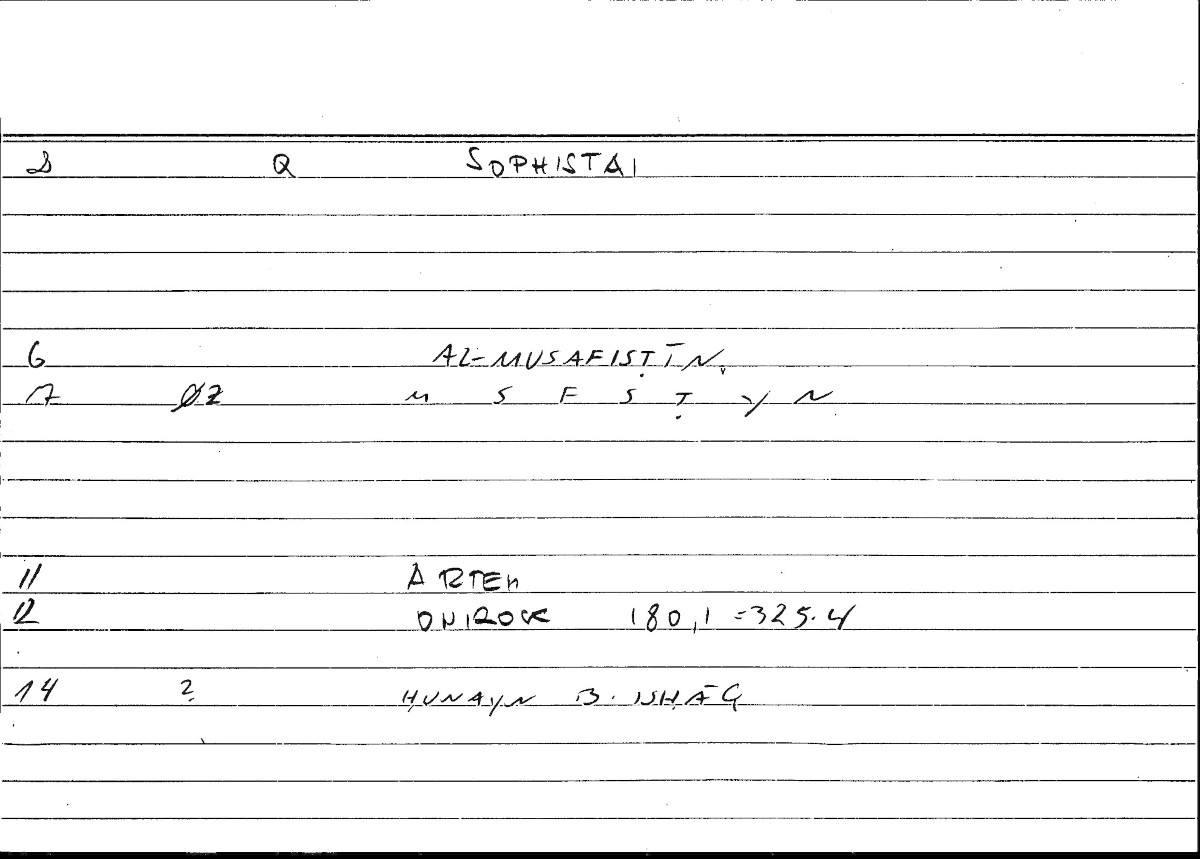 Q SOPHISTAI
6 AL-MUSAFISṬĪN
7 ØZ M S F S Ṭ Y N
11 ARTEM
12 ONIROCR 180,1 =325.4
14 ? ḤUNAYN B. ISḤĀQ